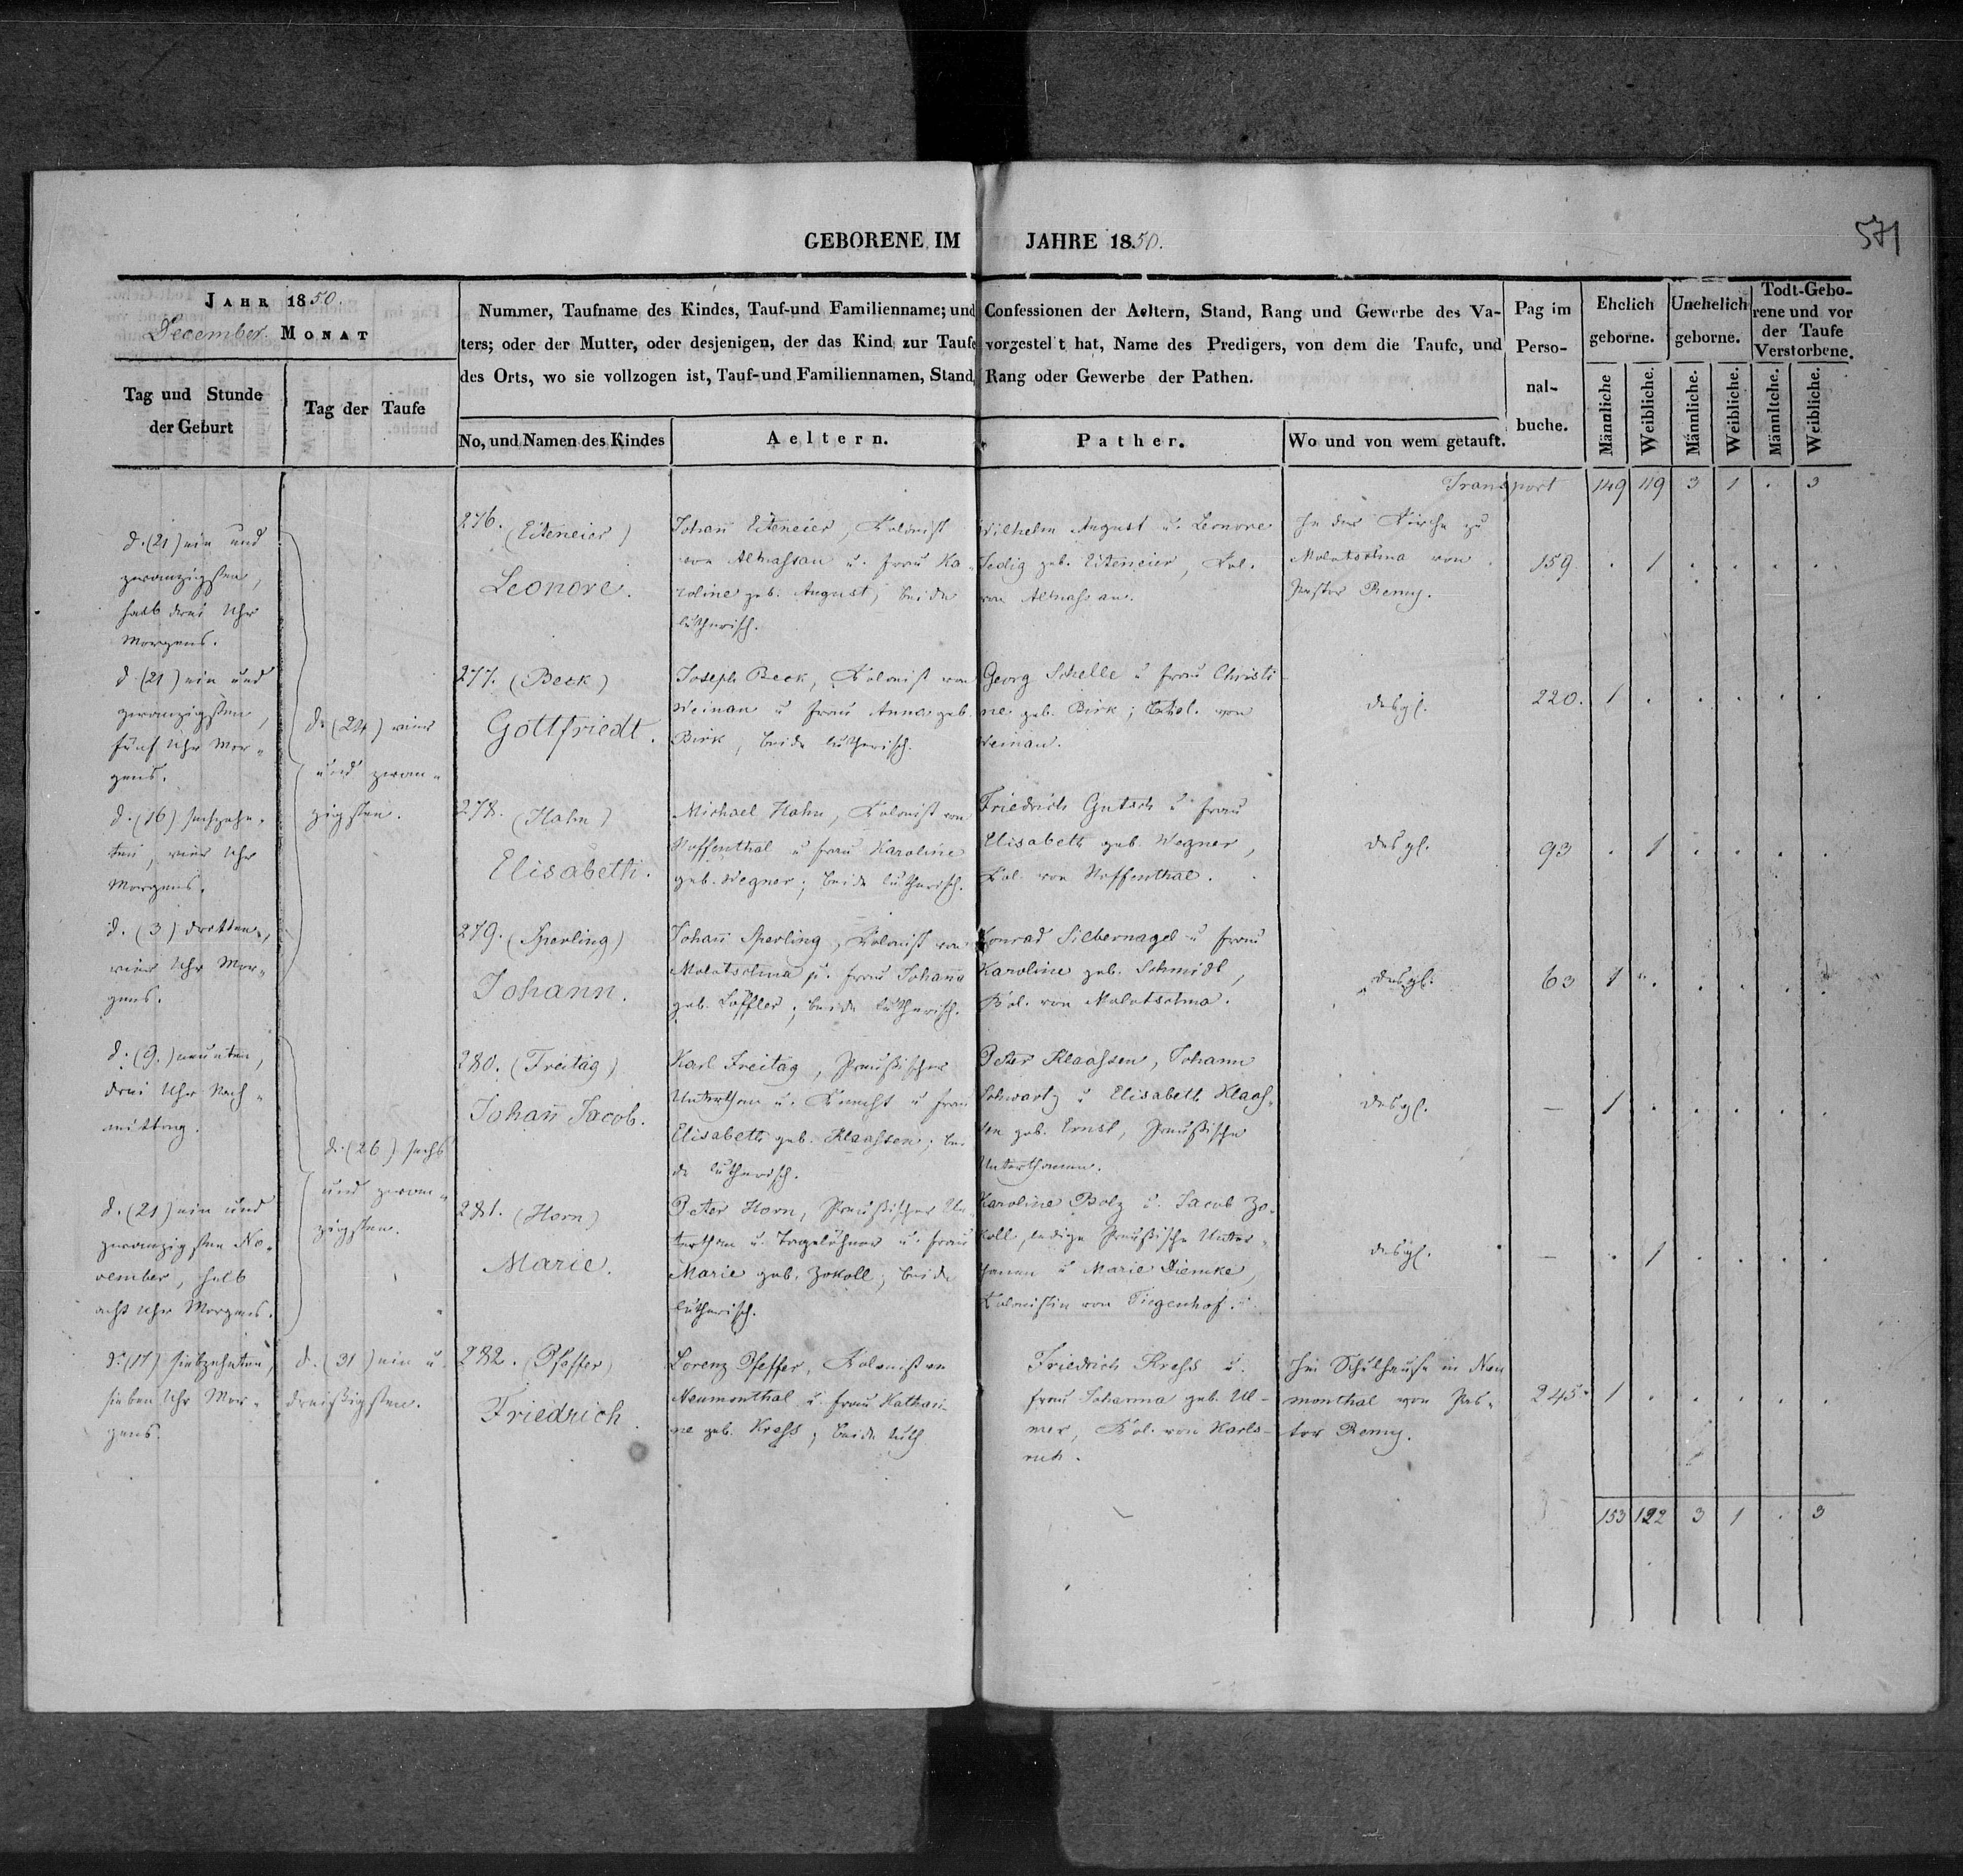 GEBORENE IM JAHRE 1850.
571
JAHR 1850.
December. MONAT
Tag und Stunde
der Geburt
Tag der Taufe
Nummer, Taufname des Kindes, Tauf-und Familienname; und Confessionen der Aeltern, Stand, Rang und Gewerbe des Va-
ters; oder der Mutter, oder desjenigen, der das Kind zur Taufe vorgestel t hat, Name des Predigers, von dem die Taufe, und
des Orts, wo sie vollzogen ist, Tauf-und Familiennamen, Stand, Rang oder Gewerbe der Pathen.
No, und Namen des Kindes
Aeltern.
Pather.
Wo und von wem getauft.
Pag im
Perso-
nal-
buche.
Ehelich
geborne.
Unehelich
geborne.
Todt-Gebo-
rene und vor
der Taufe
Verstorbene.
Männliche
Weibliche.
Männliche.
Weibliche.
Männltche.
Weibliche.
Transport 149 119 3 1 . 3
d. (21) ein und
zwanzigsten,
halb drei Uhr
Morgens.
276. (Eiteneier)
Leonore.
Johañ Eiteneier, Kolonist
von Altnassau u. Frau Ka-
roline geb. August, beide
lutherisch.
Wilhelm August u. Leonore
geb. Eiteneier, Kol.
von Altnassau.
In der Kirche zu
Molotschna von
Pastor Remy.
159 . 1 . . . .
d. (21) ein und
zwanzigsten,
fünf Uhr Mor-
gens.
d. (24) vier
und zwan-
zigsten.
277. (Beck)
Gottfriedt.
Joseph Beck, Kolonist von
Weinau u Frau Anna geb.
Birk, beide lutherisch.
Georg Schelle u Frau Christi-
ne geb. Birk; Kol. von
Weinau.
desgl.
220. 1 . . . . .
d. (16) sechzehn-
ten, vier Uhr
Morgens.
278. (Hahn)
Elisabeth.
Michael Hahn, Kolonist von
Hoffenthal u Frau Karoline
geb. Wegner; beide lutherisch.
Friedrich Gutsch u Frau
Elisabeth geb. Wegner,
Kol. von Hoffenthal.
desgl.
93 . 1 . . . .
d. (3) dritten,
vier Uhr Mor-
gens.
279. (Sperling)
Johann.
Johañ Sperling, Kolonist von
Molotschna u. Frau Johañe
geb. Löffler; beide lutherisch.
Konrad Silbernagel u Frau
Karoline geb. Schmidt,
Kol. von Molotschna.
desgl.
63 1 . . . . .
d. (9.) neunten,
drei Uhr Nach-
mittag.
d. (26) sechs
und zwan-
zigsten.
280. (Freitag)
Johañ Jacob.
Karl Freitag, Preußischer
Unterthan u. Knecht u Frau
Elisabeth geb. Klaassen; bei-
de lutherisch.
Peter Klaassen, Johann
Schwartz u Elisabeth Klaas-
sen geb. Ernst, Preußische
Unterthanen.
desgl.
— 1 . . . . .
d. (21) ein und
zwanzigsten No-
vember, halb
acht Uhr Morgens.
281. (Horn)
Marie.
Peter Horn, Preußischer Un-
terthan u. Tagelöhner u. Frau
Marie geb. Zokoll; beide
lutherisch.
Karoline Bolz u. Jacob Zo-
koll, ledige Preußische Unter-
thanen u Marie Diemke,
Kolonistin von Tiegenhof.
desgl.
— . 1 . . . .
d. (17) siebzehnten,
sieben Uhr Mor-
gens.
d. (31) ein u.
dreißigsten.
282. (Pfeffer)
Friedrich.
Lorenz Pfeffer, Kolonist von
Neumonthal u. Frau Kathari-
ne geb. Kress; beide luth.
Friedrich Kress u.
Frau Johanna geb. Ul-
mer, Kol. von Karls-
ruh.
Im Schulhause in Neu
monthal von Pas-
tor Remy.
245. 1 . . . . .
153 122 3 1 . 3